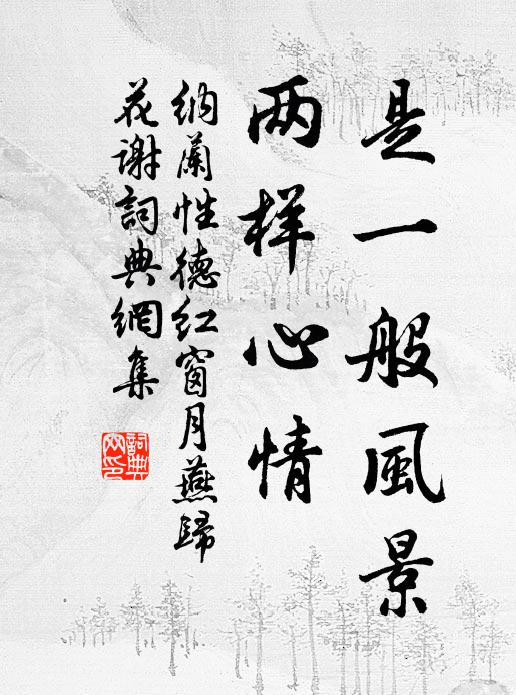 是一般風景
两样心情
納蘭性德红窗月燕歸
花謝詞典網集
詞典网印